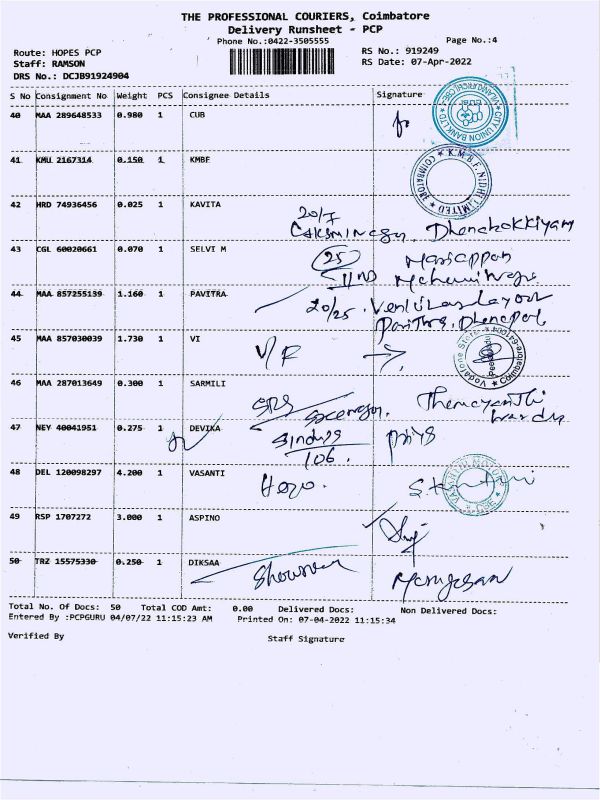 THE PROFESSIONAL COURIERS, Coimbatore
Delivery Runsheet - PCP
Phone No.:0422-3505555
Page No.:4
Route: HOPES PCP
RS No.: 919249
Staff: RAMSON
RS Date: 07-Apr-2022
DRS No.: DCJB91924904
S No Consignment No Weight PCS Consignee Details Signature
40 MAA 289648533 0.980 1 CUB
CITY UNION BANK LTD.
41 KMU 2167314 0.150 1 KMBF
K.M.B.F. NIDHI LIMITED COIMBATORE
42 HRD 74936456 0.025 1 KAVITA
20/7
Dhenabakkiyam
43 CGL 60020661 0.070 1 SELVI M
25 Mariappan
IInd
44 MAA 857255139 1.160 1 PAVITRA
20/25.
Pavithra. Dhenapal
45 MAA 857030039 1.730 1 VI
V/F
Vodafone Store Coimbatore
46 MAA 287013649 0.300 1 SARMILI
SRS
47 NEY 40041951 0.275 1 DEVIKA
106. priya
48 DEL 120098297 4.200 1 VASANTI
Hero.
49 RSP 1707272 3.000 1 ASPINO
50 TRZ 15575330 0.250 1 DIKSAA
Murugesan
Total No. Of Docs: 50 Total COD Amt: 0.00 Delivered Docs: Non Delivered Docs:
Entered By :PCPGURU 04/07/22 11:15:23 AM Printed On: 07-04-2022 11:15:34
Verified By Staff Signature